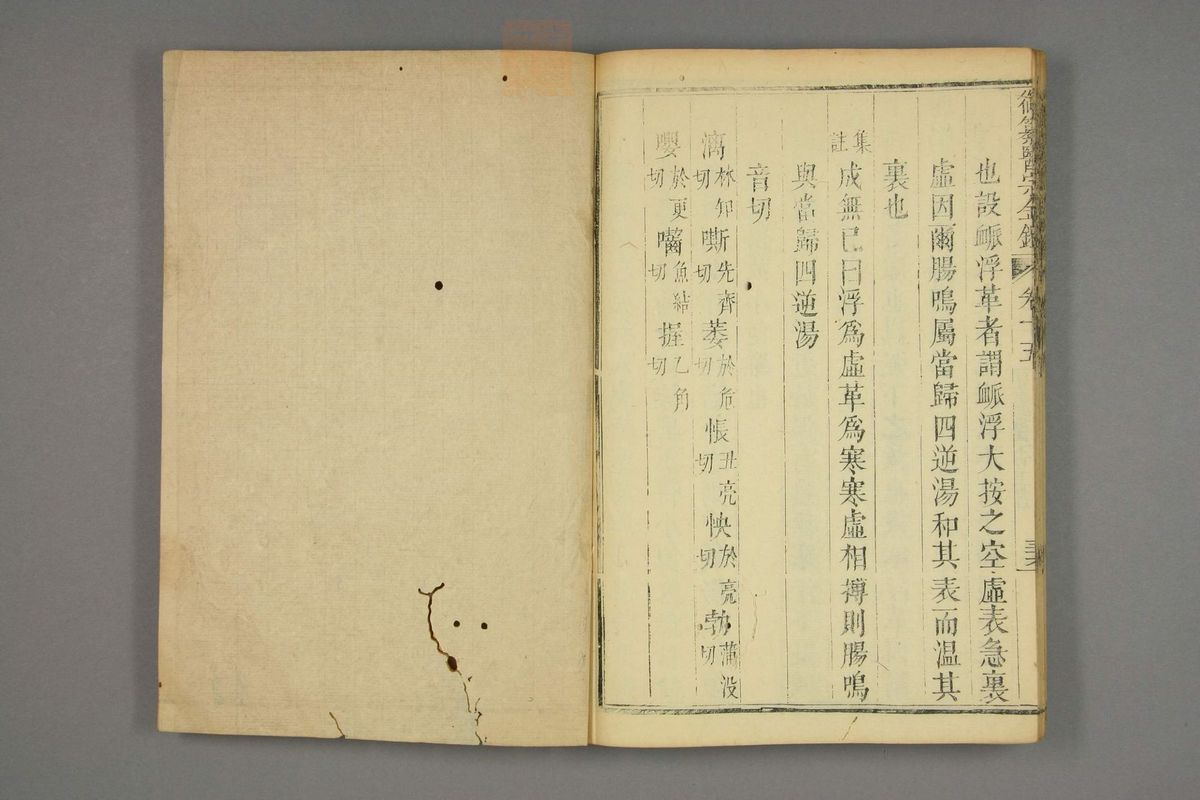 也設䘑浮革者謂䘑浮大按之空虛表急裏
虛因爾腸鳴屬當歸四逆湯和其表而溫其
裏也
集註
成無已曰浮爲虛革爲寒寒虛相搏則腸鳴
與當歸四逆湯
音切
漓林知切嘶先齊切萎於危切悵丑亮切怏於亮切勃蒲沒切
嚶於更切嚙魚結切握乙角切
卷十五